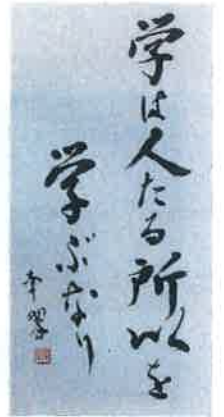 学は人たる所以を
学ぶなり